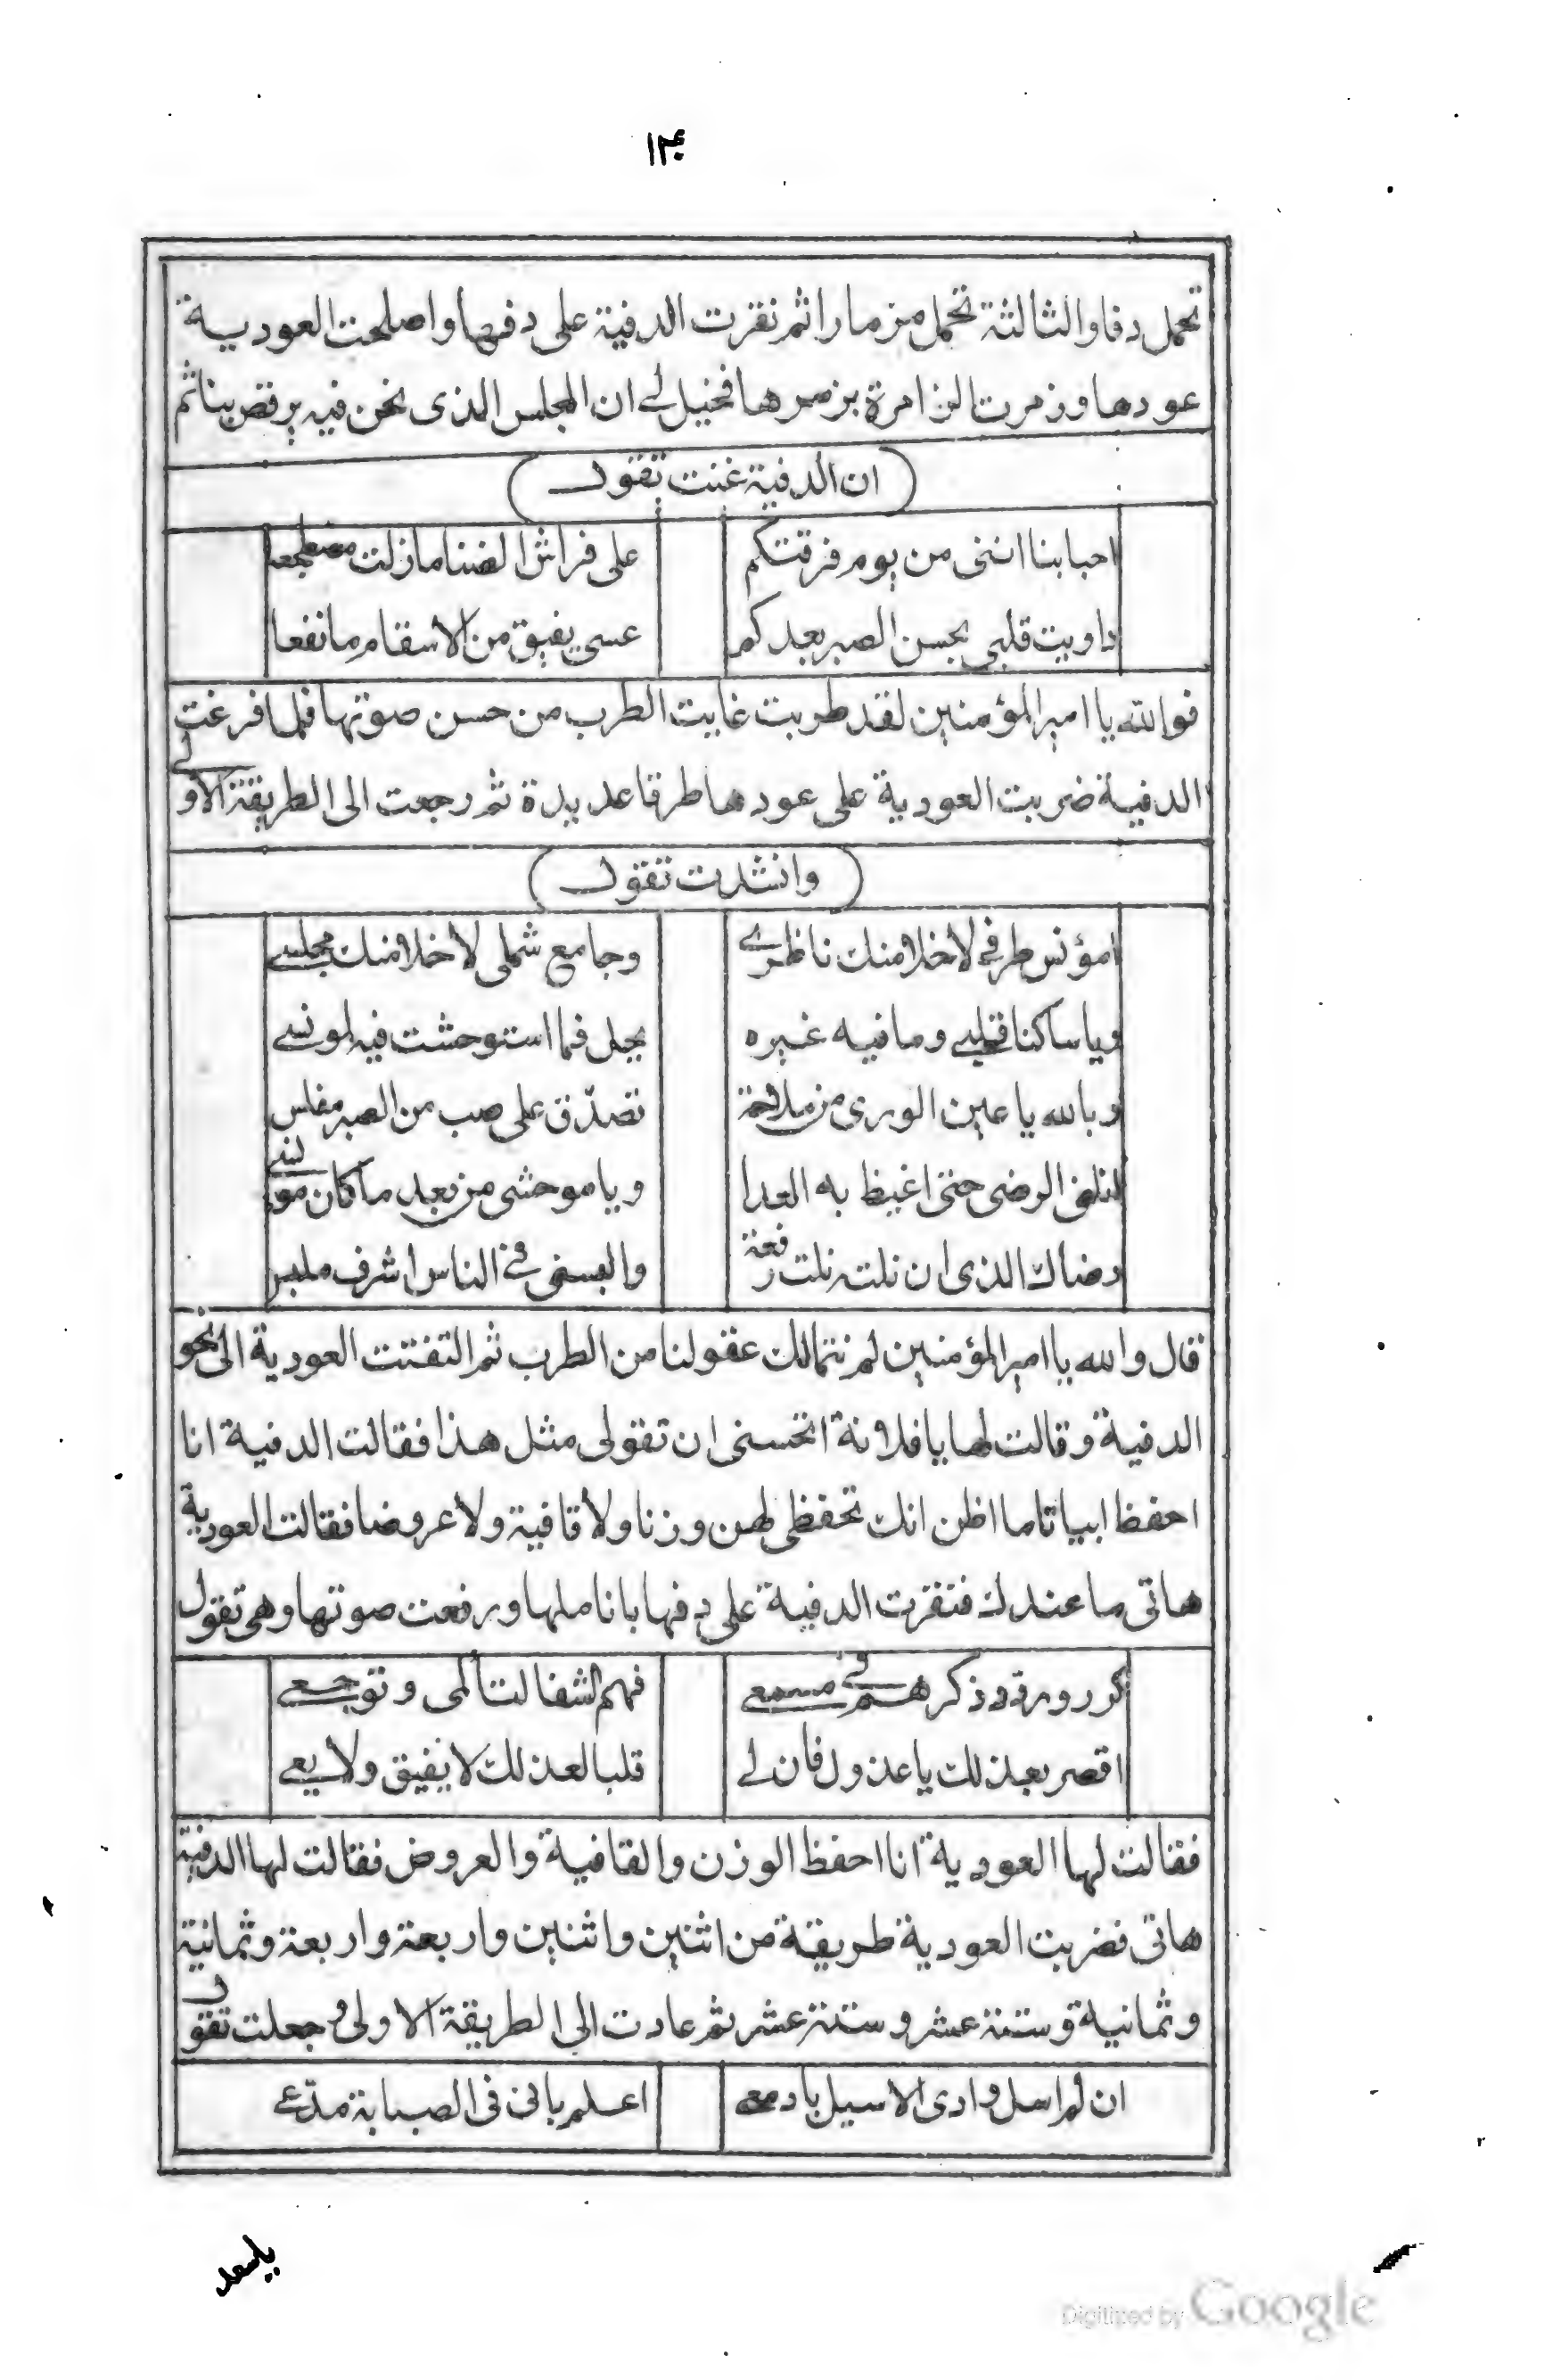 ١٣٠
تحمل دفا والثالثة تحمل مزمارا ثم نقرت الدفية على دفها واصلحت العودية
عودها وزمرت الزامرة بزمرها فخيل لي ان المجلس الذى نحن فيه يرقص بنا ثم
ان الدفية غنت تقول
احبابنا اننى من يوم فرقتكم على فراش الضنا ما زلت مضطجعا
داويت قلبى بحسن الصبر بعدكم عسى يفيق من الاسقام ما نفعا
فوالله يا امير المؤمنين لقد طربت غايت الطرب من حسن صوتها فلما فرغت
الدفية ضربت العودية على عودها طرقا عديدة ثم رجعت الى الطريقة الاولى
وانشدت تقول
امؤنس طرفي لا خلا منك ناظرى وجامع شملى لا خلا منك مجلسي
ويا ساكنا قلبي وما فيه غيره بحل فما استوحشت فيه لمونسي
وبالله يا عين الورى من ملاحة تصدّق على صب من الصبر مفلس
انلنى الرضى حتى اغيظ به العدا ويا موحشى من بعد ما كان مونسي
رضاك الذى ان نلته نلت رفعة والبسنى في الناس اشرف ملبس
قال والله يا امير المؤمنين لم نتمالك عقولنا من الطرب ثم التفتت العودية الى نحو
الدفية وقالت لها يا فلانة اتحسنى ان تقولى مثل هذا فقالت الدفية انا
احفظ ابياتا ما اظن انك تحفظى لهن وزنا ولا قافية ولا عروضا فقالت العودية
هاتى ما عندك فنقرت الدفية على دفها باناملها ورفعت صوتها وهى تقول
كرر وردد ذكرهم في مسمعي فهم الشفا لتألمى وتوجعي
اقصر بعذلك يا عذول فان لي قلبا لعذلك لا يفيق ولا يعي
فقالت لها العودية انا احفظ الوزن والقافية والعروض فقالت لها الدفية
هاتى فضربت العودية طريقة من اثنين واثنين واربعة واربعة وثمانية
وثمانية وستة عشر وستة عشر ثم عادت الى الطريقة الاولى وجعلت تقول
ان لم اسل وادى الاسيل بادمعى اعلم بانى فى الصبابة مدّعي
Digitized by Google